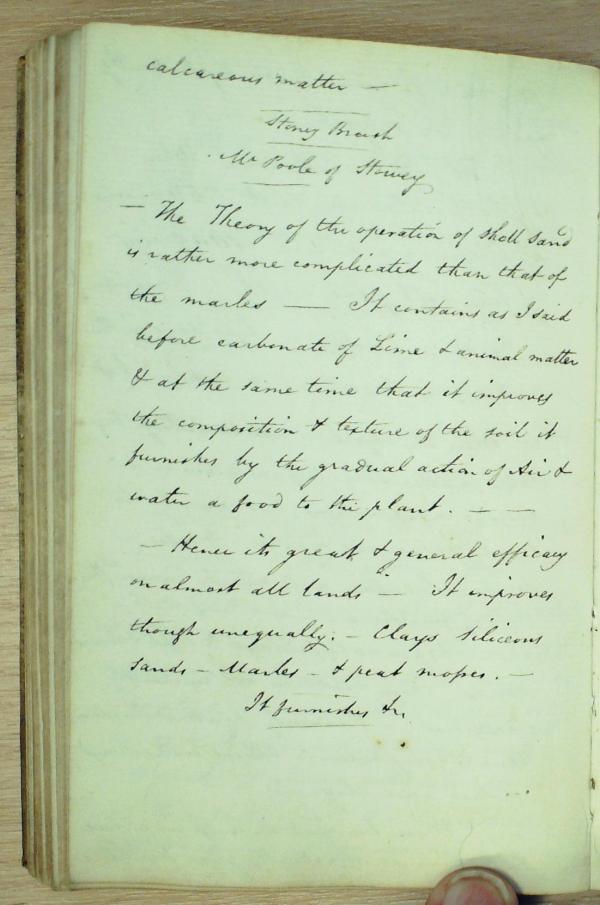 calcareous matter —
Stoney Brash
Mr Poole of Stowey
— The Theory of the operation of shell sand
is rather more complicated than that of
the marles — It contains as I said
before carbonate of Lime & animal matter
& at the same time that it improves
the composition & texture of the soil it
furnishes by the gradual action of Air &
water a food to the plant. — —
— Hence its great & general efficacy
on almost all lands — It improves
though unequally. – Clays siliceous
sands – Marles – & peat mosses. —
It furnishes &c